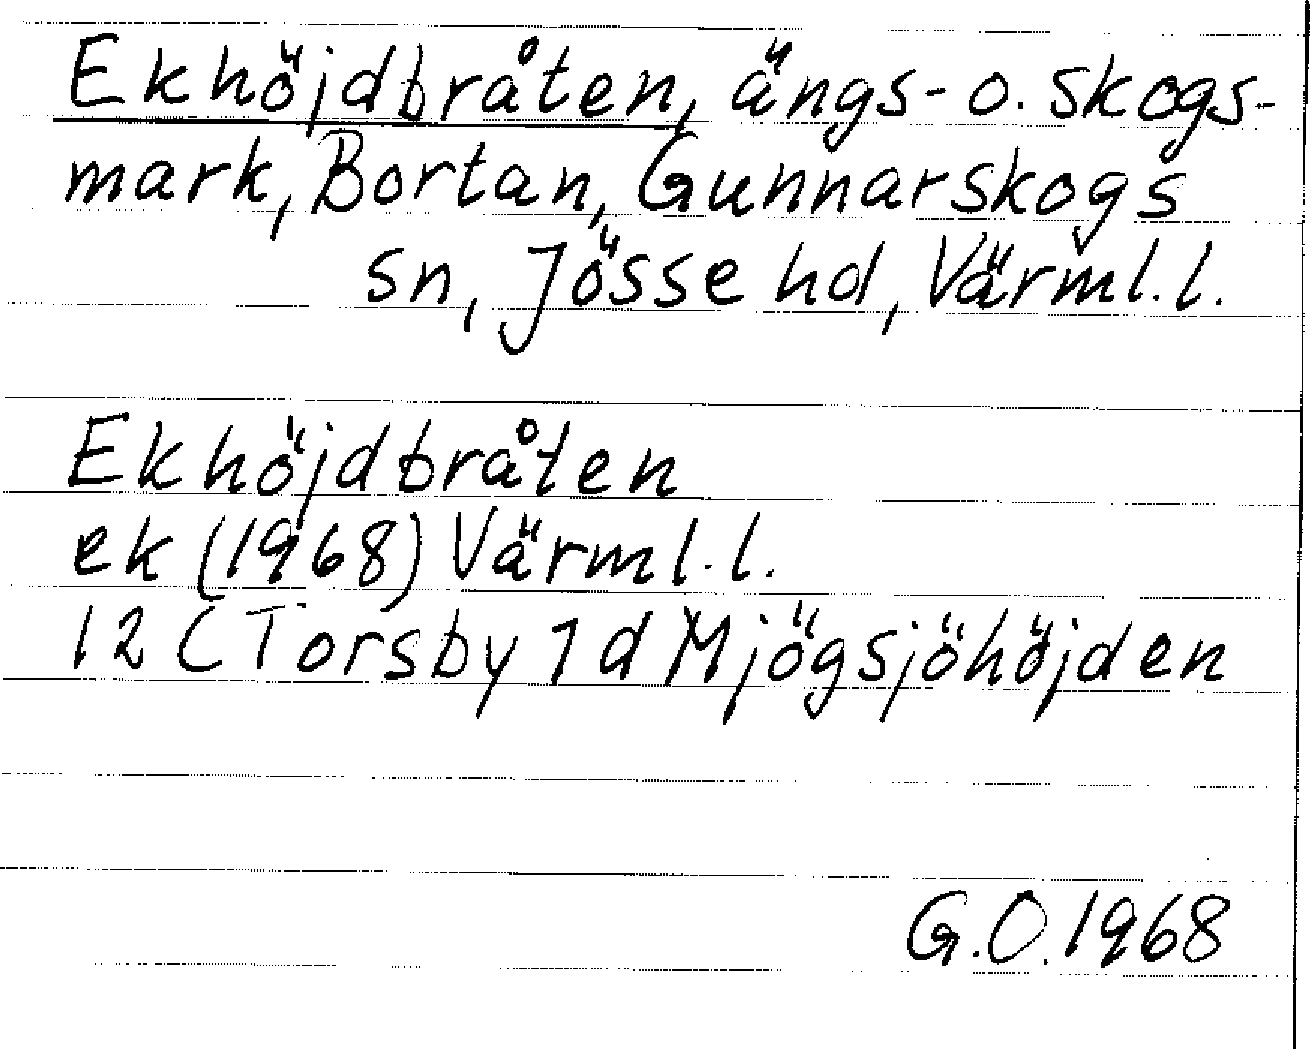 Ekhöjdbråten, ängs- o. skogs-
mark, Bortan, Gunnarskogs
sn, Jösse hd, Värml. l.
Ekhöjdbråten
ek (1968) Värml. l.
12 C Torsby 1 d Mjögsjöhöjden
G.O. 1968